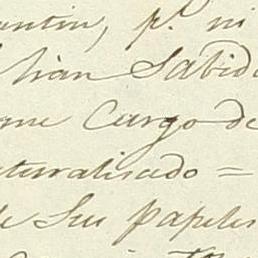 entin, p.r ni
han Sabid
ame Cargo de
turalisado =
de Sus Papeles